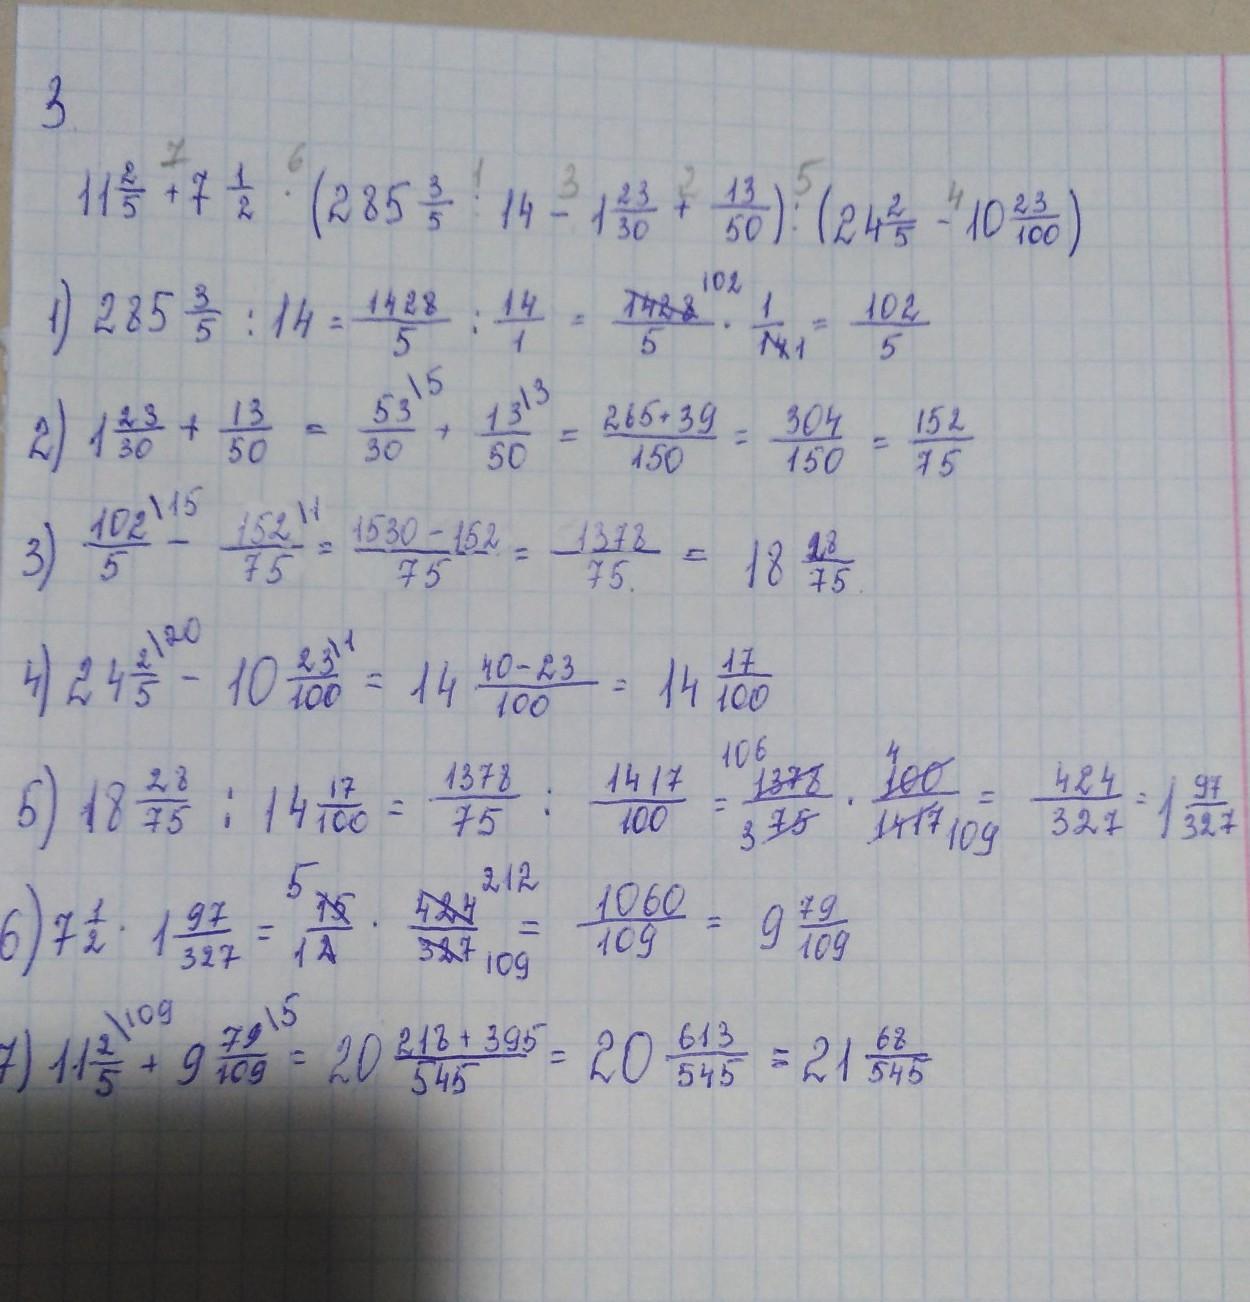 3
11 2/5 + 7 1/2 · (285 3/5 : 14 - 1 23/30 + 13/50) : (24 2/5 - 10 23/100)
7 6 1 3 2 5 4
1) 285 3/5 : 14 = 1428/5 : 14/1 = 1428 102/5 · 1/14 1 = 102/5
2) 1 23/30 + 13/50 = 53\5/30 + 13\3/50 = 265+39/150 = 304/150 = 152/75
3) 102\15/5 - 152\1/75 = 1530-152/75 = 1378/75 = 18 28/75
4) 24 2\20/5 - 10 23\1/100 = 14 40-23/100 = 14 17/100
5) 18 28/75 : 14 17/100 = 1378/75 : 1417/100 = 106 1378/3 75 · 4 100/1417 109 = 424/327 = 1 97/327
6) 7 1/2 · 1 97/327 = 5 15/1 2 · 424 212/327 109 = 1060/109 = 9 79/109
7) 11 2\109/5 + 9 79\5/109 = 20 218+395/545 = 20 613/545 = 21 68/545